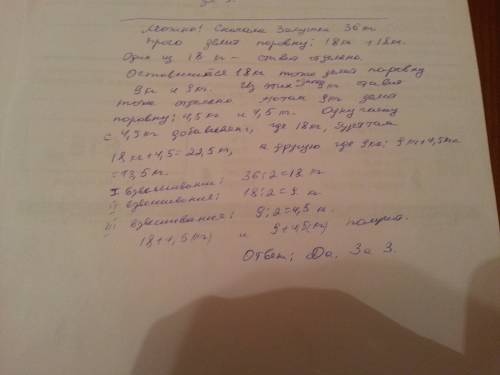 Можно! Сначала Залупен 36 кг
просо делит поровну: 18 кг и 18 кг.
Одни из 18 кг - ставит отдельно.
Оставшийся 18 кг тоже делит поровну
9 кг и 9 кг. Из этих 9 кг ставит
тоже отдельно. Потом 9 кг делит
поровну: 4,5 кг и 4,5 кг. Одну
с 4,5 кг добавляем, где 18 кг,
18 кг + 4,5 = 22,5 кг, а другую где 9 кг: 9 кг + 4,5 кг
= 13,5 кг.
I взвешивание: 36:2=18 кг
II взвешивания: 18:2=9 кг
III взвешивания: 9:2=4,5 кг.
18+4,5(кг) и 9+4,5(кг)
Ответ: Да. За 3.